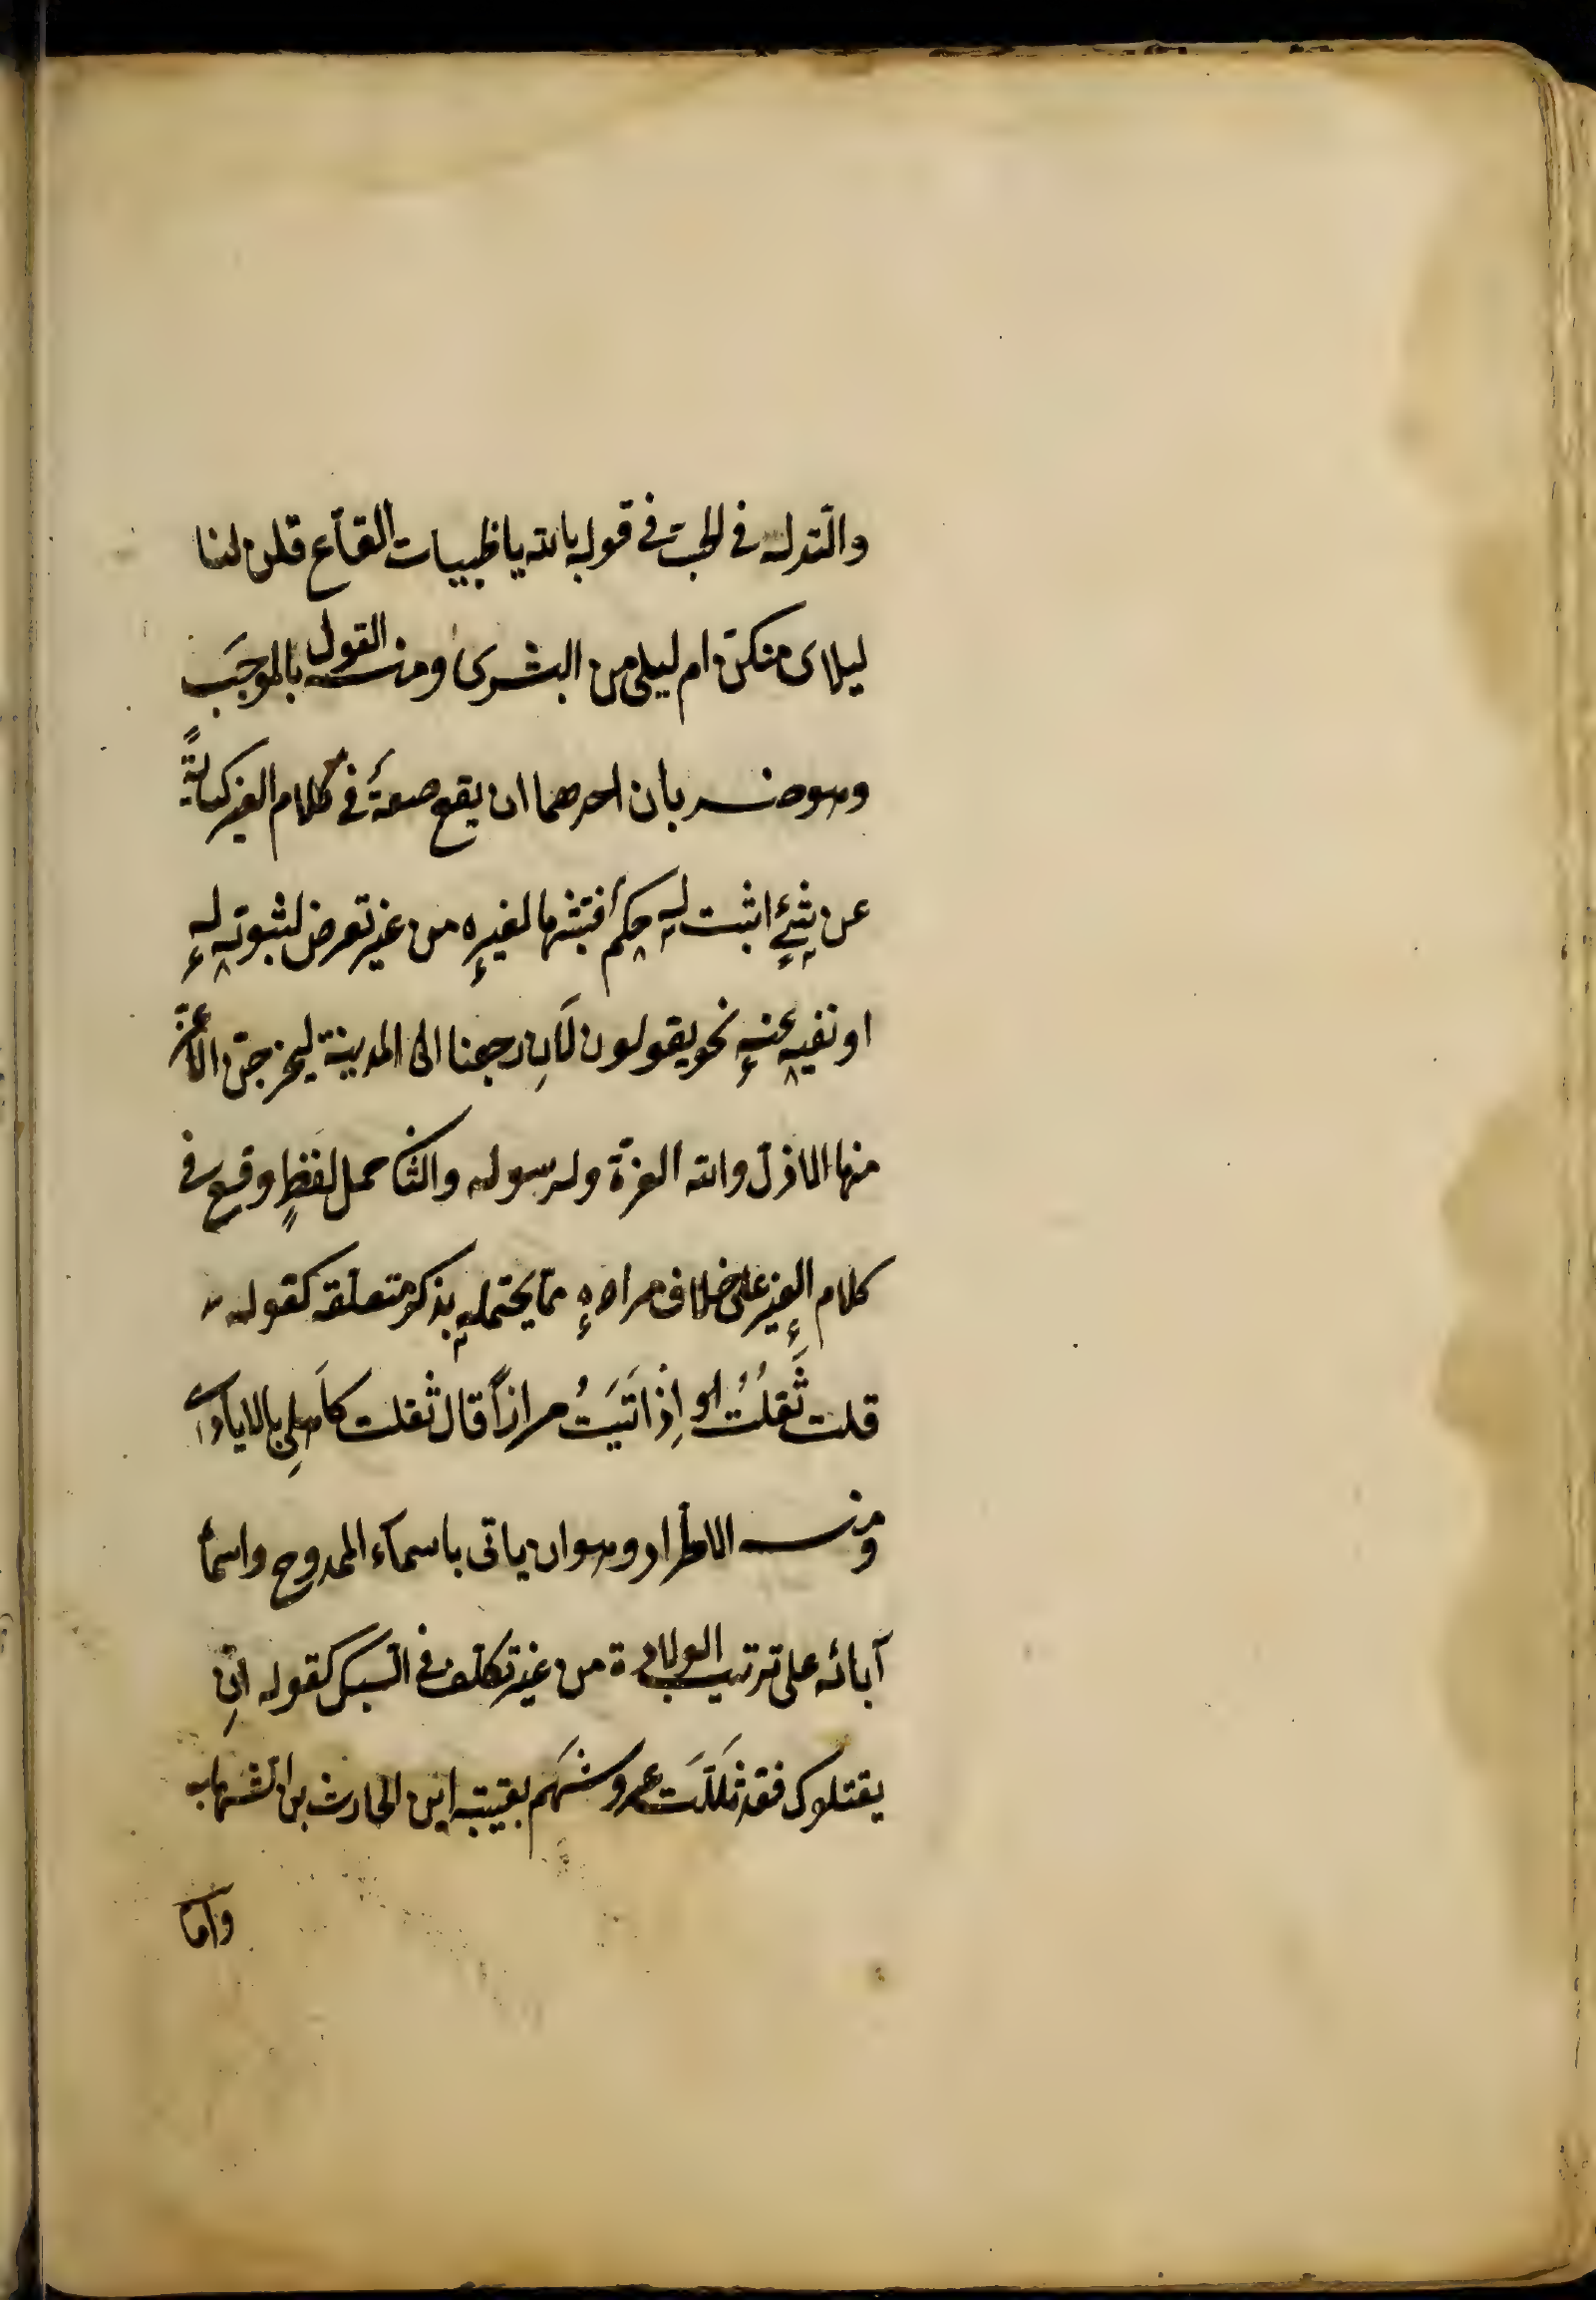 والتدله فى الحب فى قوله بالله يا ظبيات القاع قلن لنا
ليلاى منكن ام ليلى من البشرى ومنه القول بالموجب
وهو ضربان احدهما ان يقع صفة فى كلام الغير كناية
عن شئ اثبت له حكم فتثبتها لغيره من غير تعرض لثبوته له
او نفيه عنه نحو يقولون لئن رجعنا الى المدينة ليخرجن الاعز
منها الاذل ولله العزة ولرسوله والثا حمل لفظ وقع فى
كلام الغير على خلاف مراده مما يحتمله بذكر متعلقه كقوله
قلت ثقلت اذ اتيت مرارا قال ثقلت كاهلى بالايادى
ومنه الاطراد وهو ان ياتى باسماء الممدوح واسما
آبائه على ترتيب الولادة من غير تكلف فى السبك كقوله ان
يقتلوك فقد ثللت عروشهم بقتيبه ابن الحارث بن الشهاب
واما